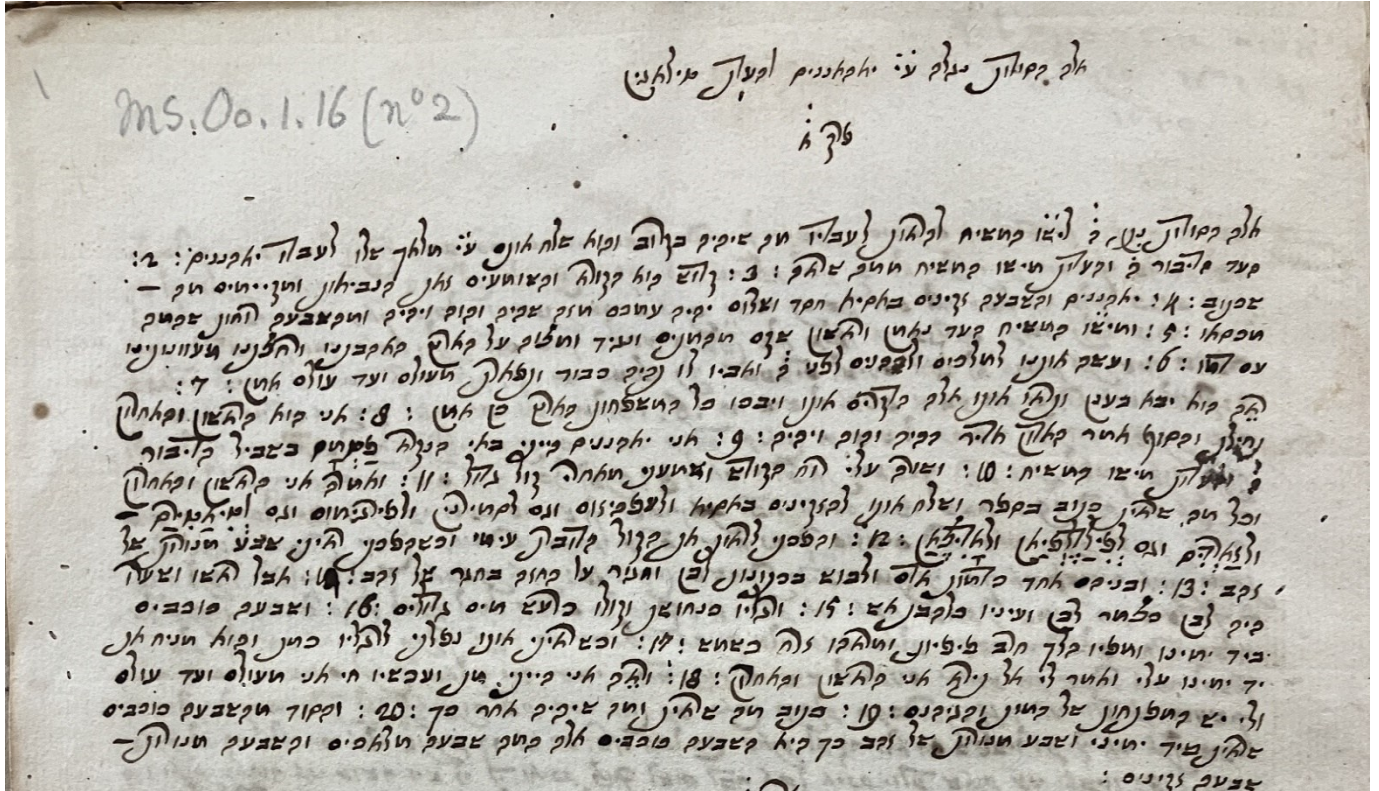 אלה הסודות נגלה ע״י יאהאננים
MS.Oo.1.16 (nº2)
פרק א
אלה הסודות ה׳ לישו המשיח להראות לעבדיו מה שיהיה בקרוב והוא שלח אותם ע״י מלאך שלו לעבדו יאהננים : 2:
העד הדיבור ה׳ והעדות מישו המשיח ממה שראה : 3: קדוש הוא הקורא והשומעים זאת הנביאות ומקיימים מה –
שכתוב : 4: יאהננים והשבעה זקינים באסיא חסד ושלום יהיה עמכם מזה שהיה והוה ויהיה ומהשבעה רוחות שתחת
הכסאו : 5: ומישו המשיח העד נאמן וראשון שקם מהמתים ונגיד ומושל על הארץ מאהבתנו ורחצנו מעוונותינו
עם דמו : 6: ועשה אותנו למלכים ולכהנים לפני ה׳ ואביו לו נהיה כבוד ותפארת מעולם ועד עולם אמן : 7:
ראה הוא יבא בענן ונראו אותו אלה אותו ויבכו כל המשפחות בארץ כן אמן : 8: אני הוא הראשון ובאחרון
תחילת והסוף אמר אדון אדיר ההיה והוה ויהיה : 9: אני יאהננים הייתי באי הנקרא בשביל הדיבור
ה׳ ועדות מישו המשיח : 10: ושרה עלי רוח הקודש ושמעתי מאחרי קול גדול : 11: ואמר אני הראשון והאחרון
וכל מה שראית כתוב בספר ושלח אותו להזקינים באסיא ולעפיזוס וגם לסמירנין ולפירגימוס וגם –
וגם לפילדלפיא : 12: והפכתי לראות את הקול הדוברת עימי וכשהפכתי ראיתי שבע מנורות של
זהב : 13: ובניהם אחד כדמות אדם ולבוש בכותנות לבן וחגור על החזה בחגר של זהב : 14: אבל ראשו ושערו
היה לבן כצמר לבן ועיניו כלהבת אש : 15: ורגליו כנחושת וקולו כרעש מים גדולים : 16: ושבעה כוכבים
ביד ימינו ומפיו הלך חרב פיפיות ומראהו זרח כשמש : 17: וכשראיתי אותו נפלתי לרגליו כמת והוא מניח את
יד ימינו עלי ואמר לי אל תירא אני הראשון והאחרון : 18: וראה אני הייתי מת ועכשיו חי אני מעולם ועד עולם
ולי יש המפתחות של המות והגיהנם : 19: כתוב מה שראית ומה שיהיה אחר כך : 20: והסוד מהשבעה כוכבים
שראית מיד ימיני ושבע מנורות של זהב כך היא השבעה כוכבים אלה המה שבעה מלאכים והשבעה מנורות –
שבעה זקינים :